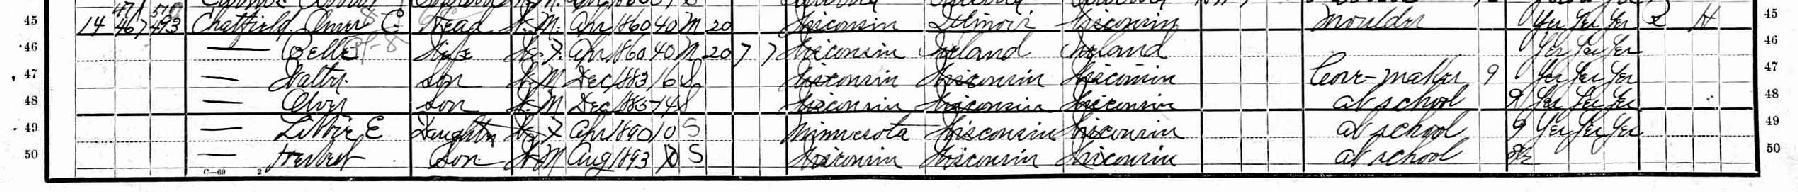 45 14 467 493 Chatfield, Elmer C Head W M Apr 1860 40 M 20 Wisconsin Illinois Wisconsin Moulder Yes Yes Yes R H 45
46 — Belle Wife W F Apr 1860 40 M 20 7 7 Wisconsin Ireland Ireland Yes Yes Yes 46
47 — Walter Son W M Dec 1883 16 S Wisconsin Wisconsin Wisconsin Core-maker 9 Yes Yes Yes 47
48 — Oliver Son W M Dec 1885 14 S Wisconsin Wisconsin Wisconsin at school 9 Yes Yes Yes 48
49 — Libbie E Daughter W F Apr 1890 10 S Minnesota Wisconsin Wisconsin at school 9 Yes Yes Yes 49
50 — Herbert Son W M Aug 1893 S Wisconsin Wisconsin Wisconsin at school 50